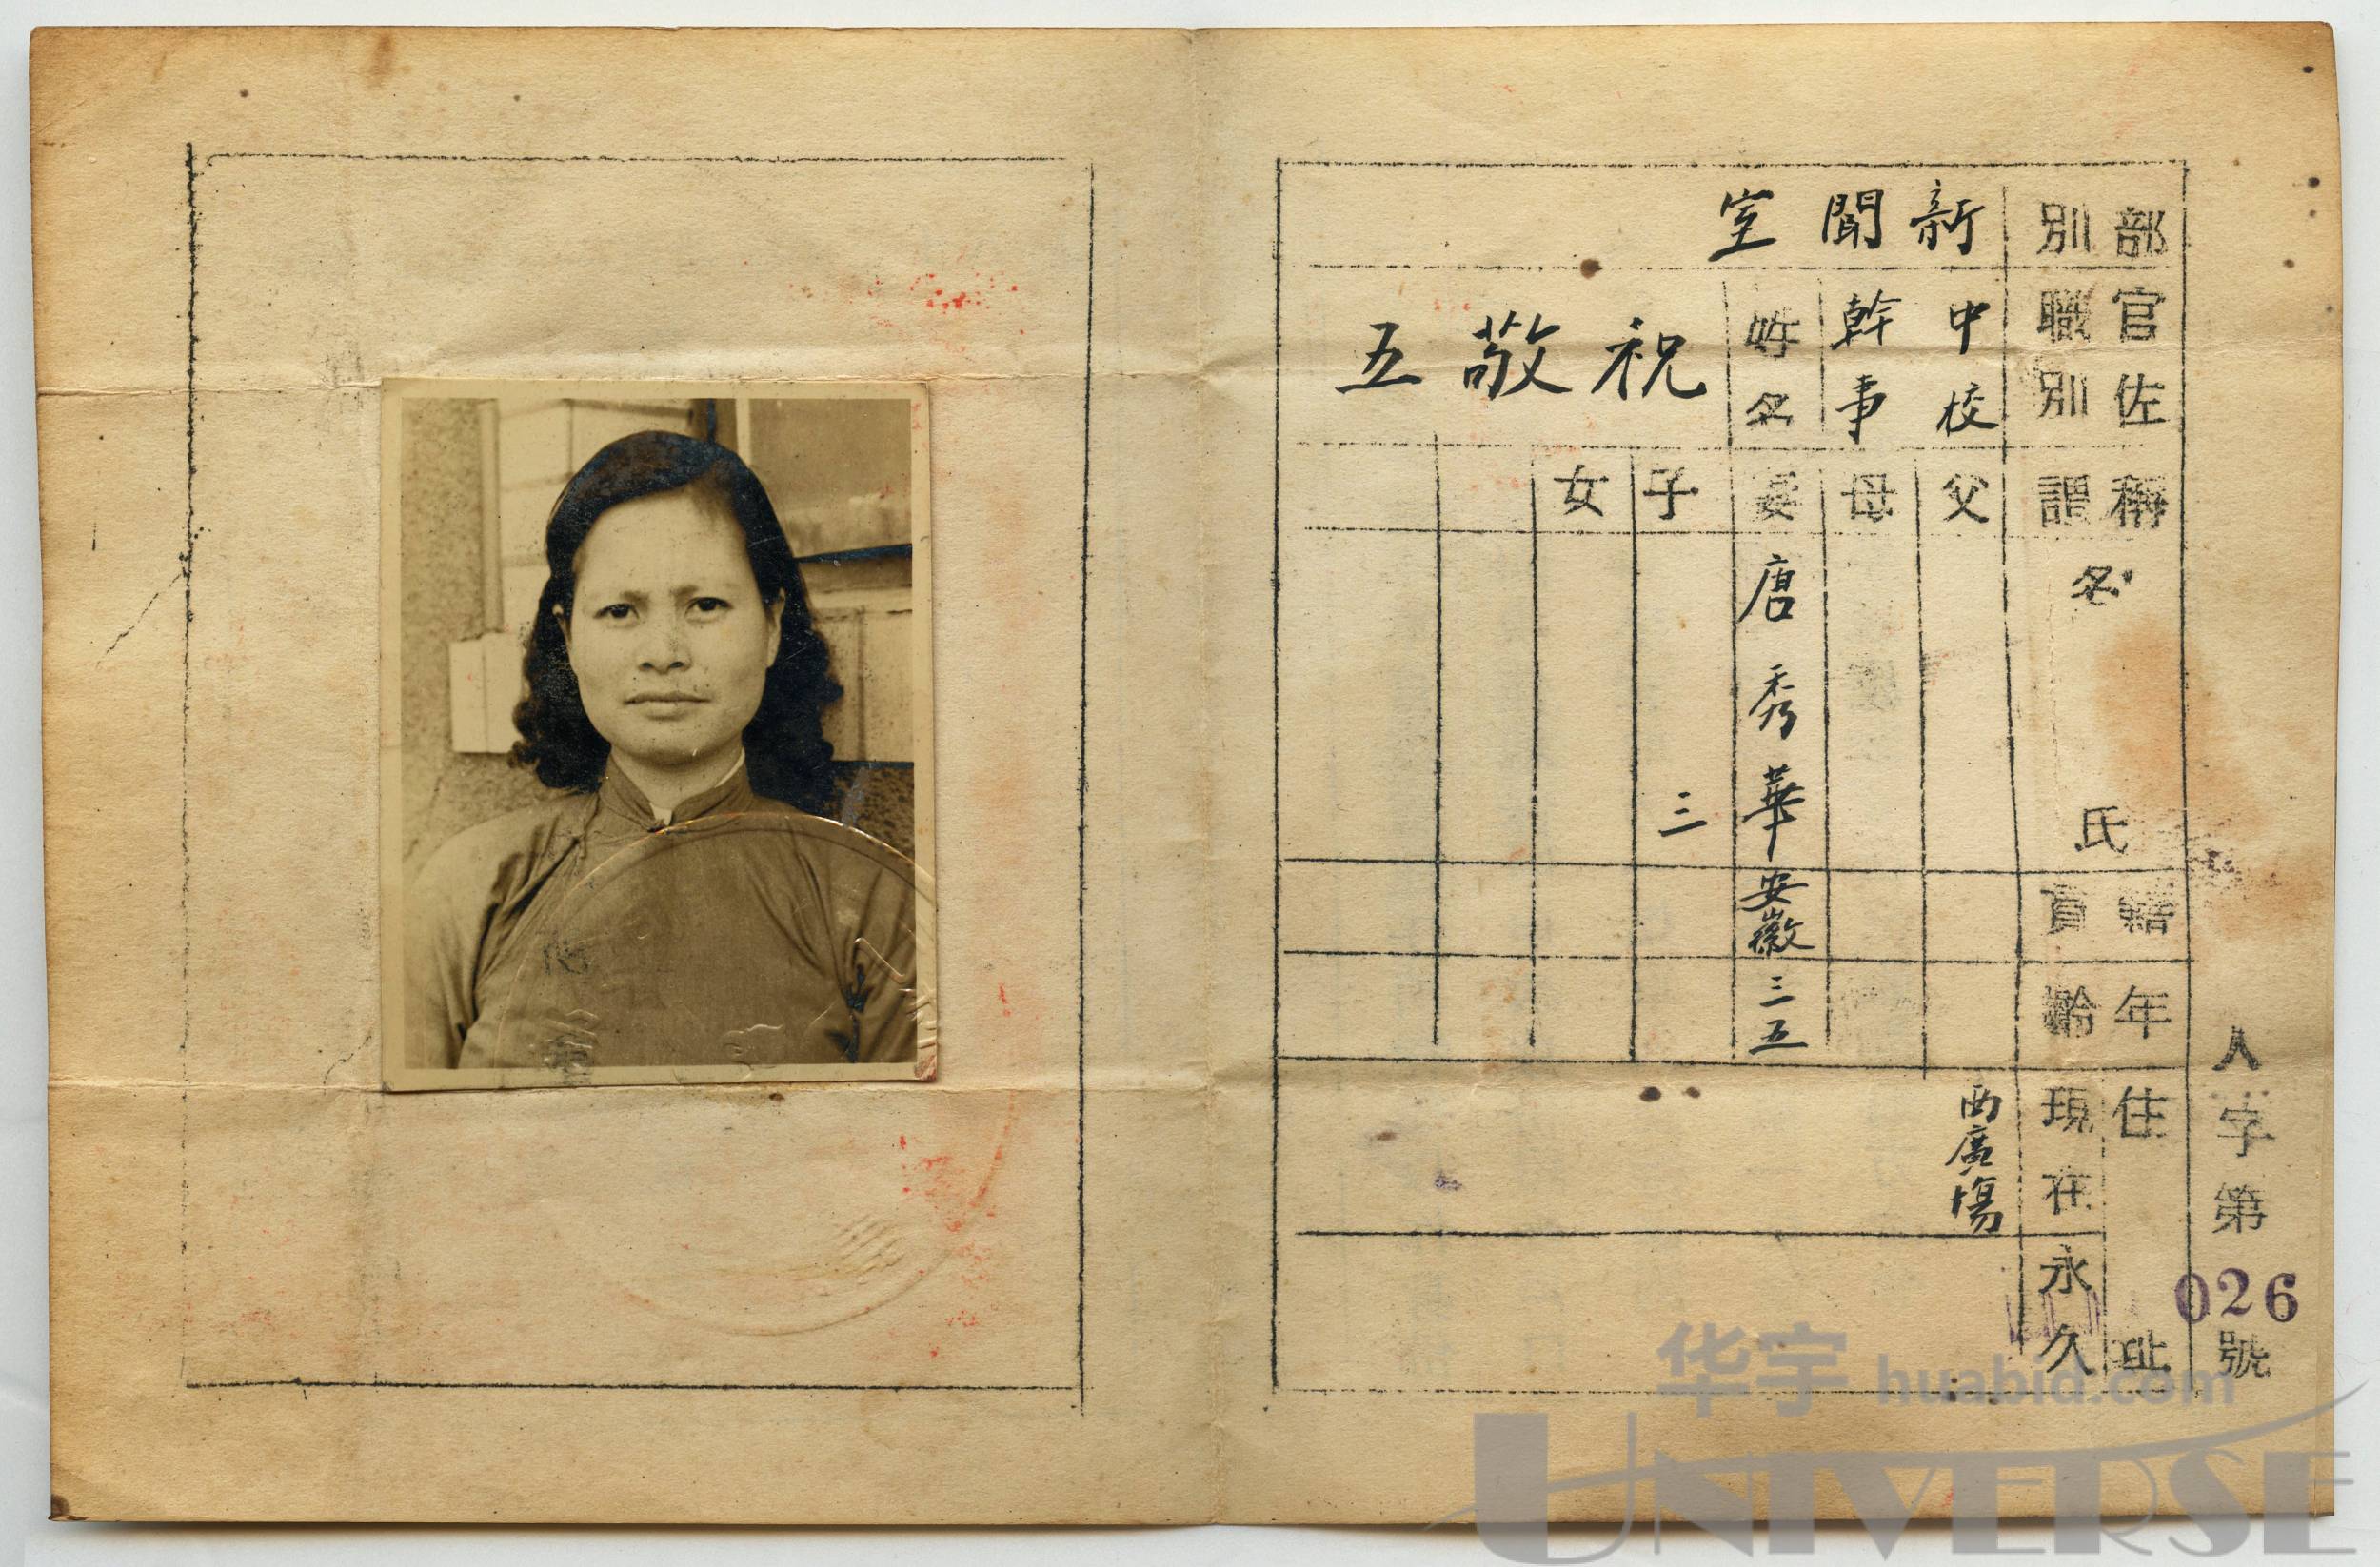 人字第026號
部別 新聞室
官佐職別 中校幹事
姓名 祝敬五
稱謂 父 母 妻 子 女
名氏 唐秀華 三
籍貫 安徽
年齡 三五
住址
現在 西廣場
永久
华宇 huabid.com
UNIVERSE